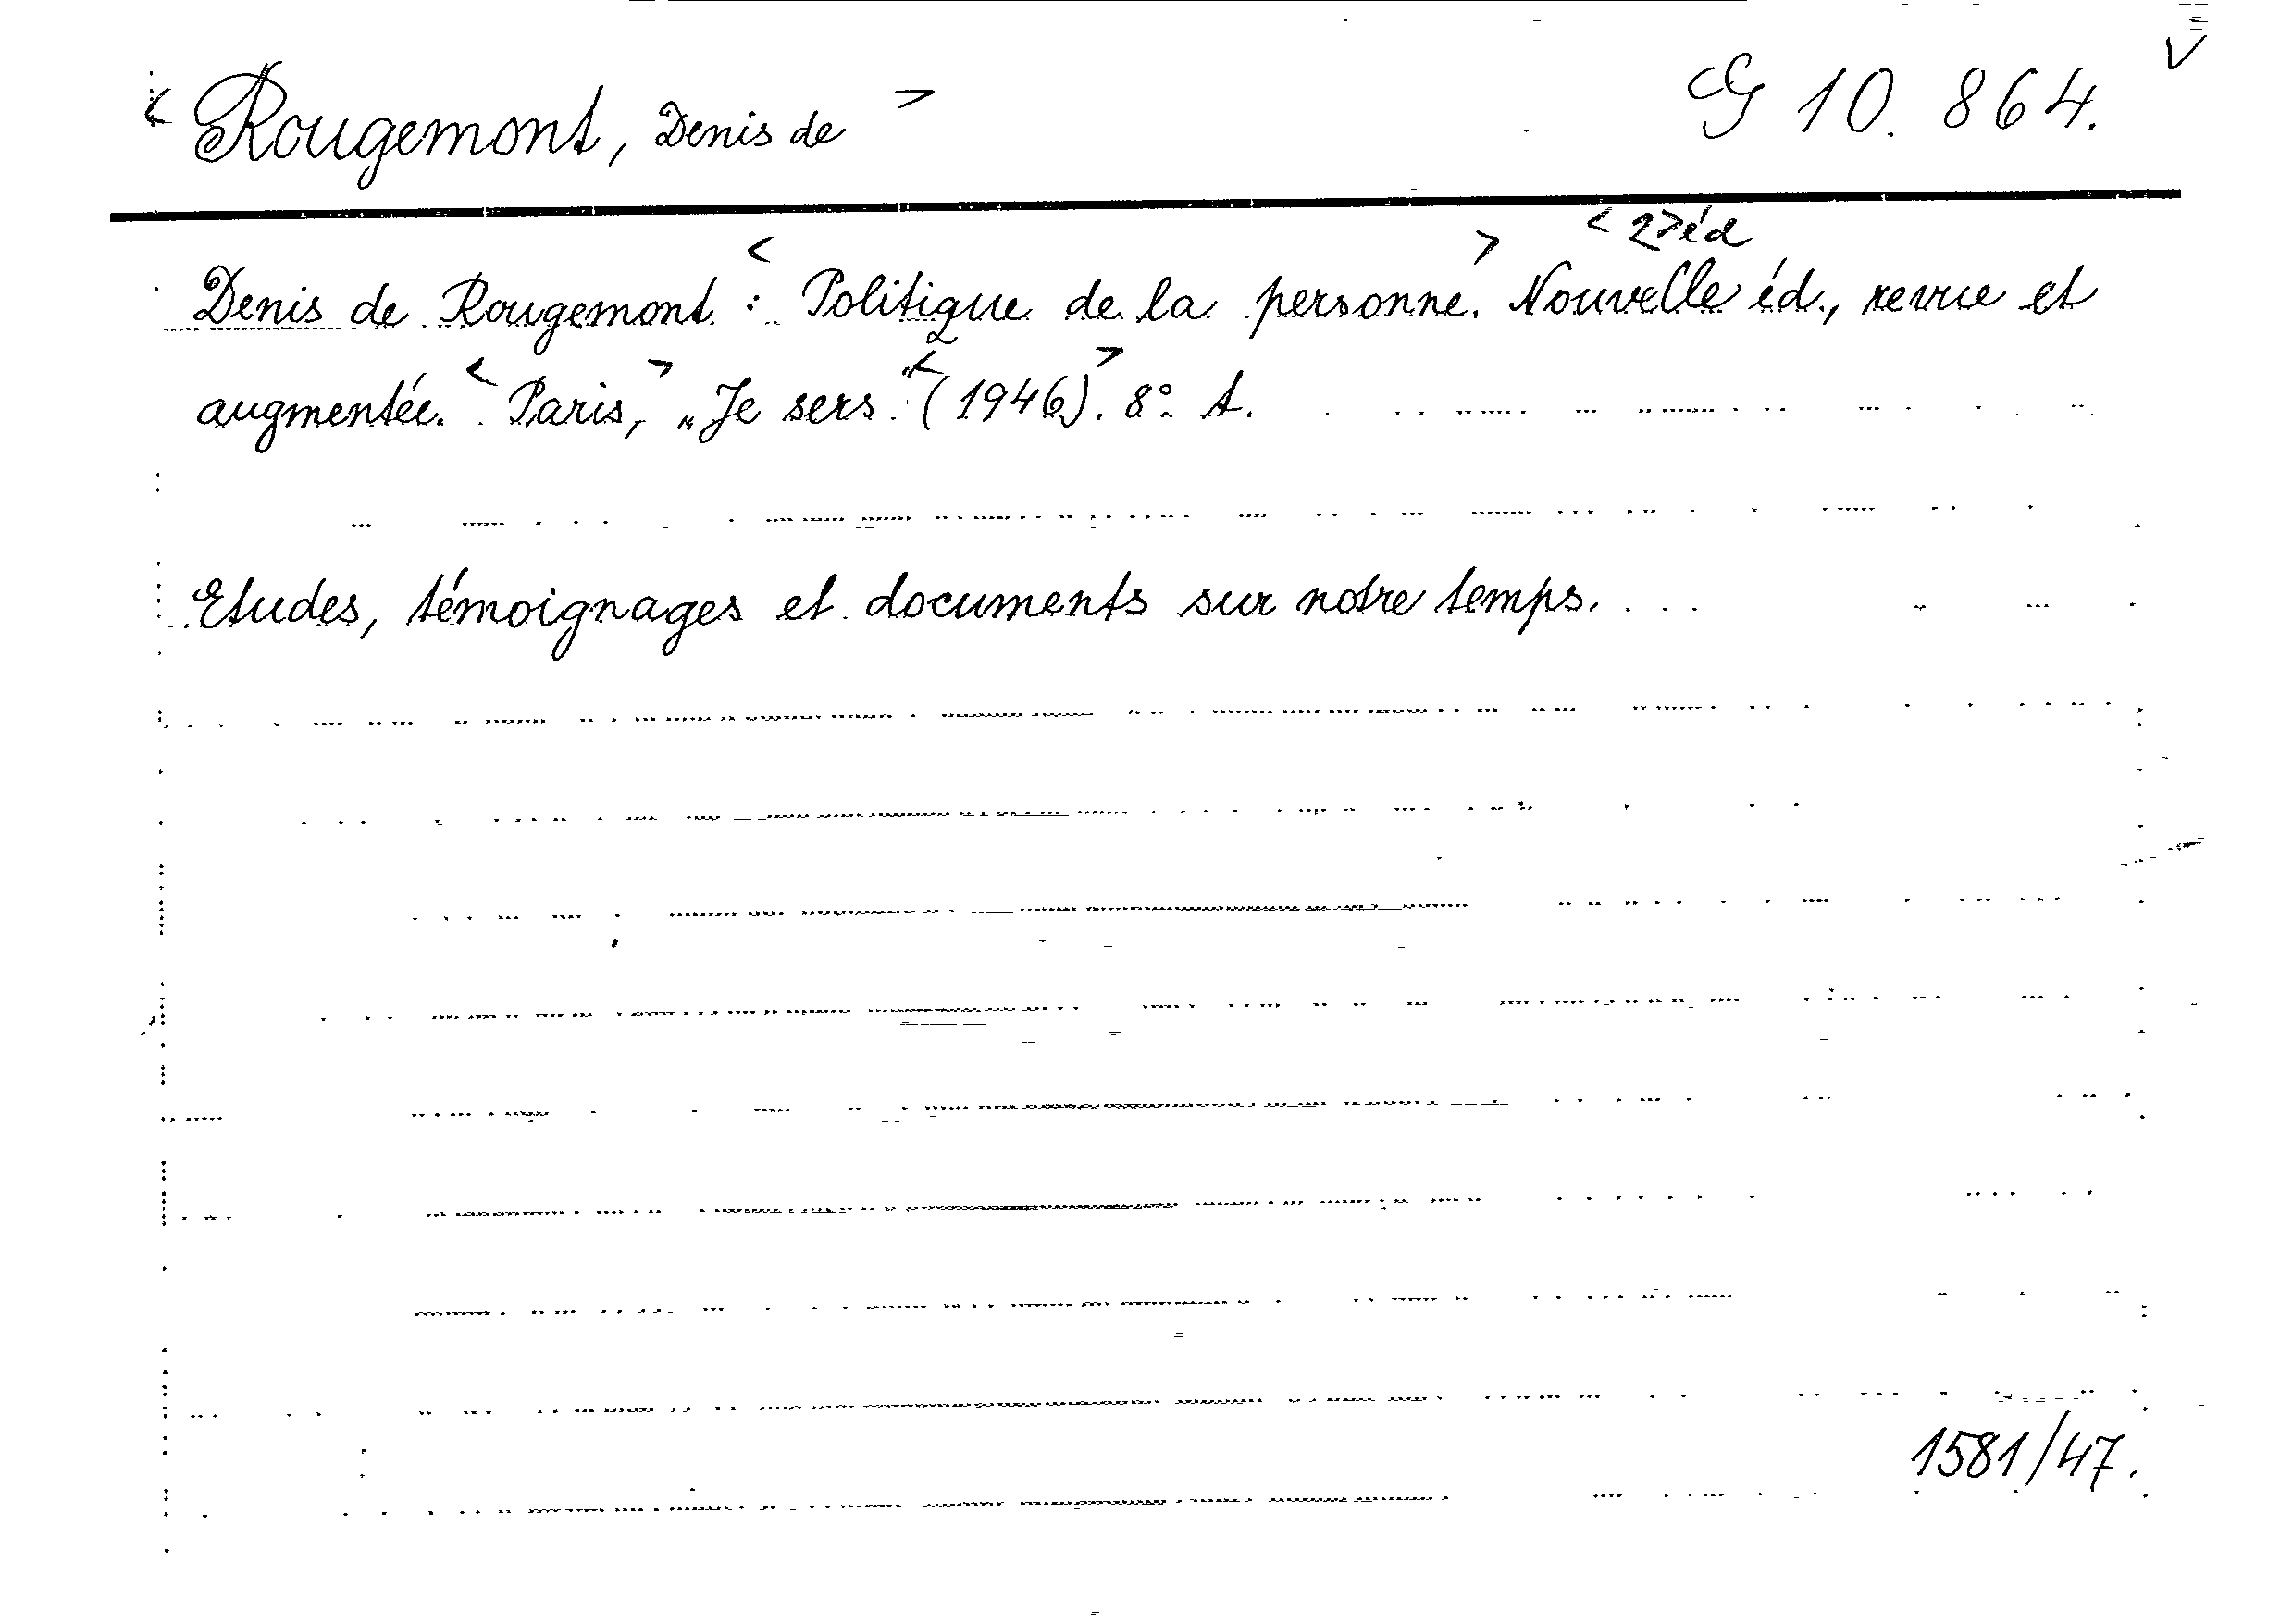 < Rougemont, Denis de > G 10.864. V
< > < 2> éd
Denis de Rougemont : Politique de la personne. Nouvelle éd., revue et
augmentée. < Paris, > „Je sers" < (1946) >. 8° A.
Etudes, témoignages et documents sur notre temps.
1581/47.